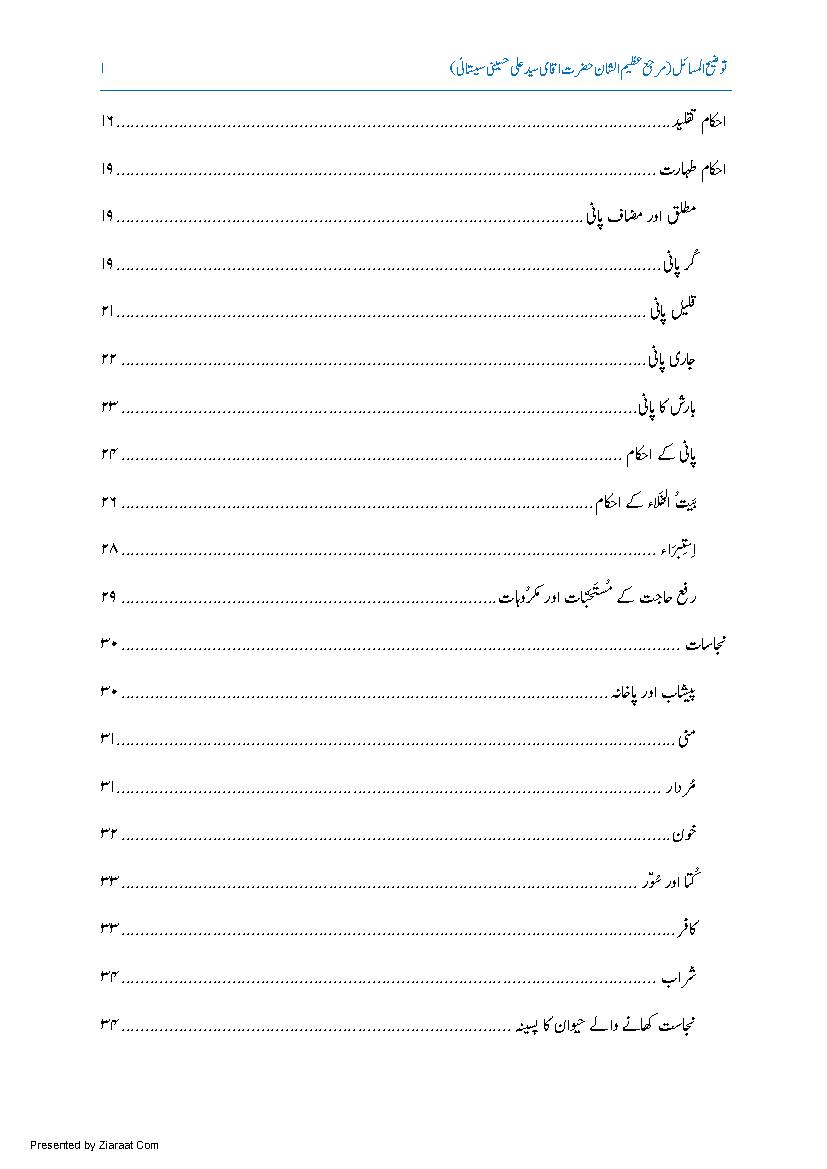 توضیح المسائل (مرجع عظیم الشان حضرت اقای سید علی حسینی سیستانی) ۱
احکام تقلید ........ ۱۶
احکام طہارت ........ ۱۹
مطلق اور مضاف پانی ........ ۱۹
کُر پانی ........ ۱۹
قلیل پانی ........ ۲۱
جاری پانی ........ ۲۲
بارش کا پانی ........ ۲۳
پانی کے احکام ........ ۲۴
بَیتُ الخَلَاء کے احکام ........ ۲۶
اِستِبرَاء ........ ۲۸
رفع حاجت کے مُستَحَبّات اور مکرُوہات ........ ۲۹
نجاسات ........ ۳۰
پیشاب اور پاخانہ ........ ۳۰
منی ........ ۳۱
مُردار ........ ۳۱
خون ........ ۳۲
کُتا اور سُوّر ........ ۳۳
کافر ........ ۳۳
شراب ........ ۳۴
نجاست کھانے والے حیوان کا پسینہ ........ ۳۴
Presented by Ziaraat Com